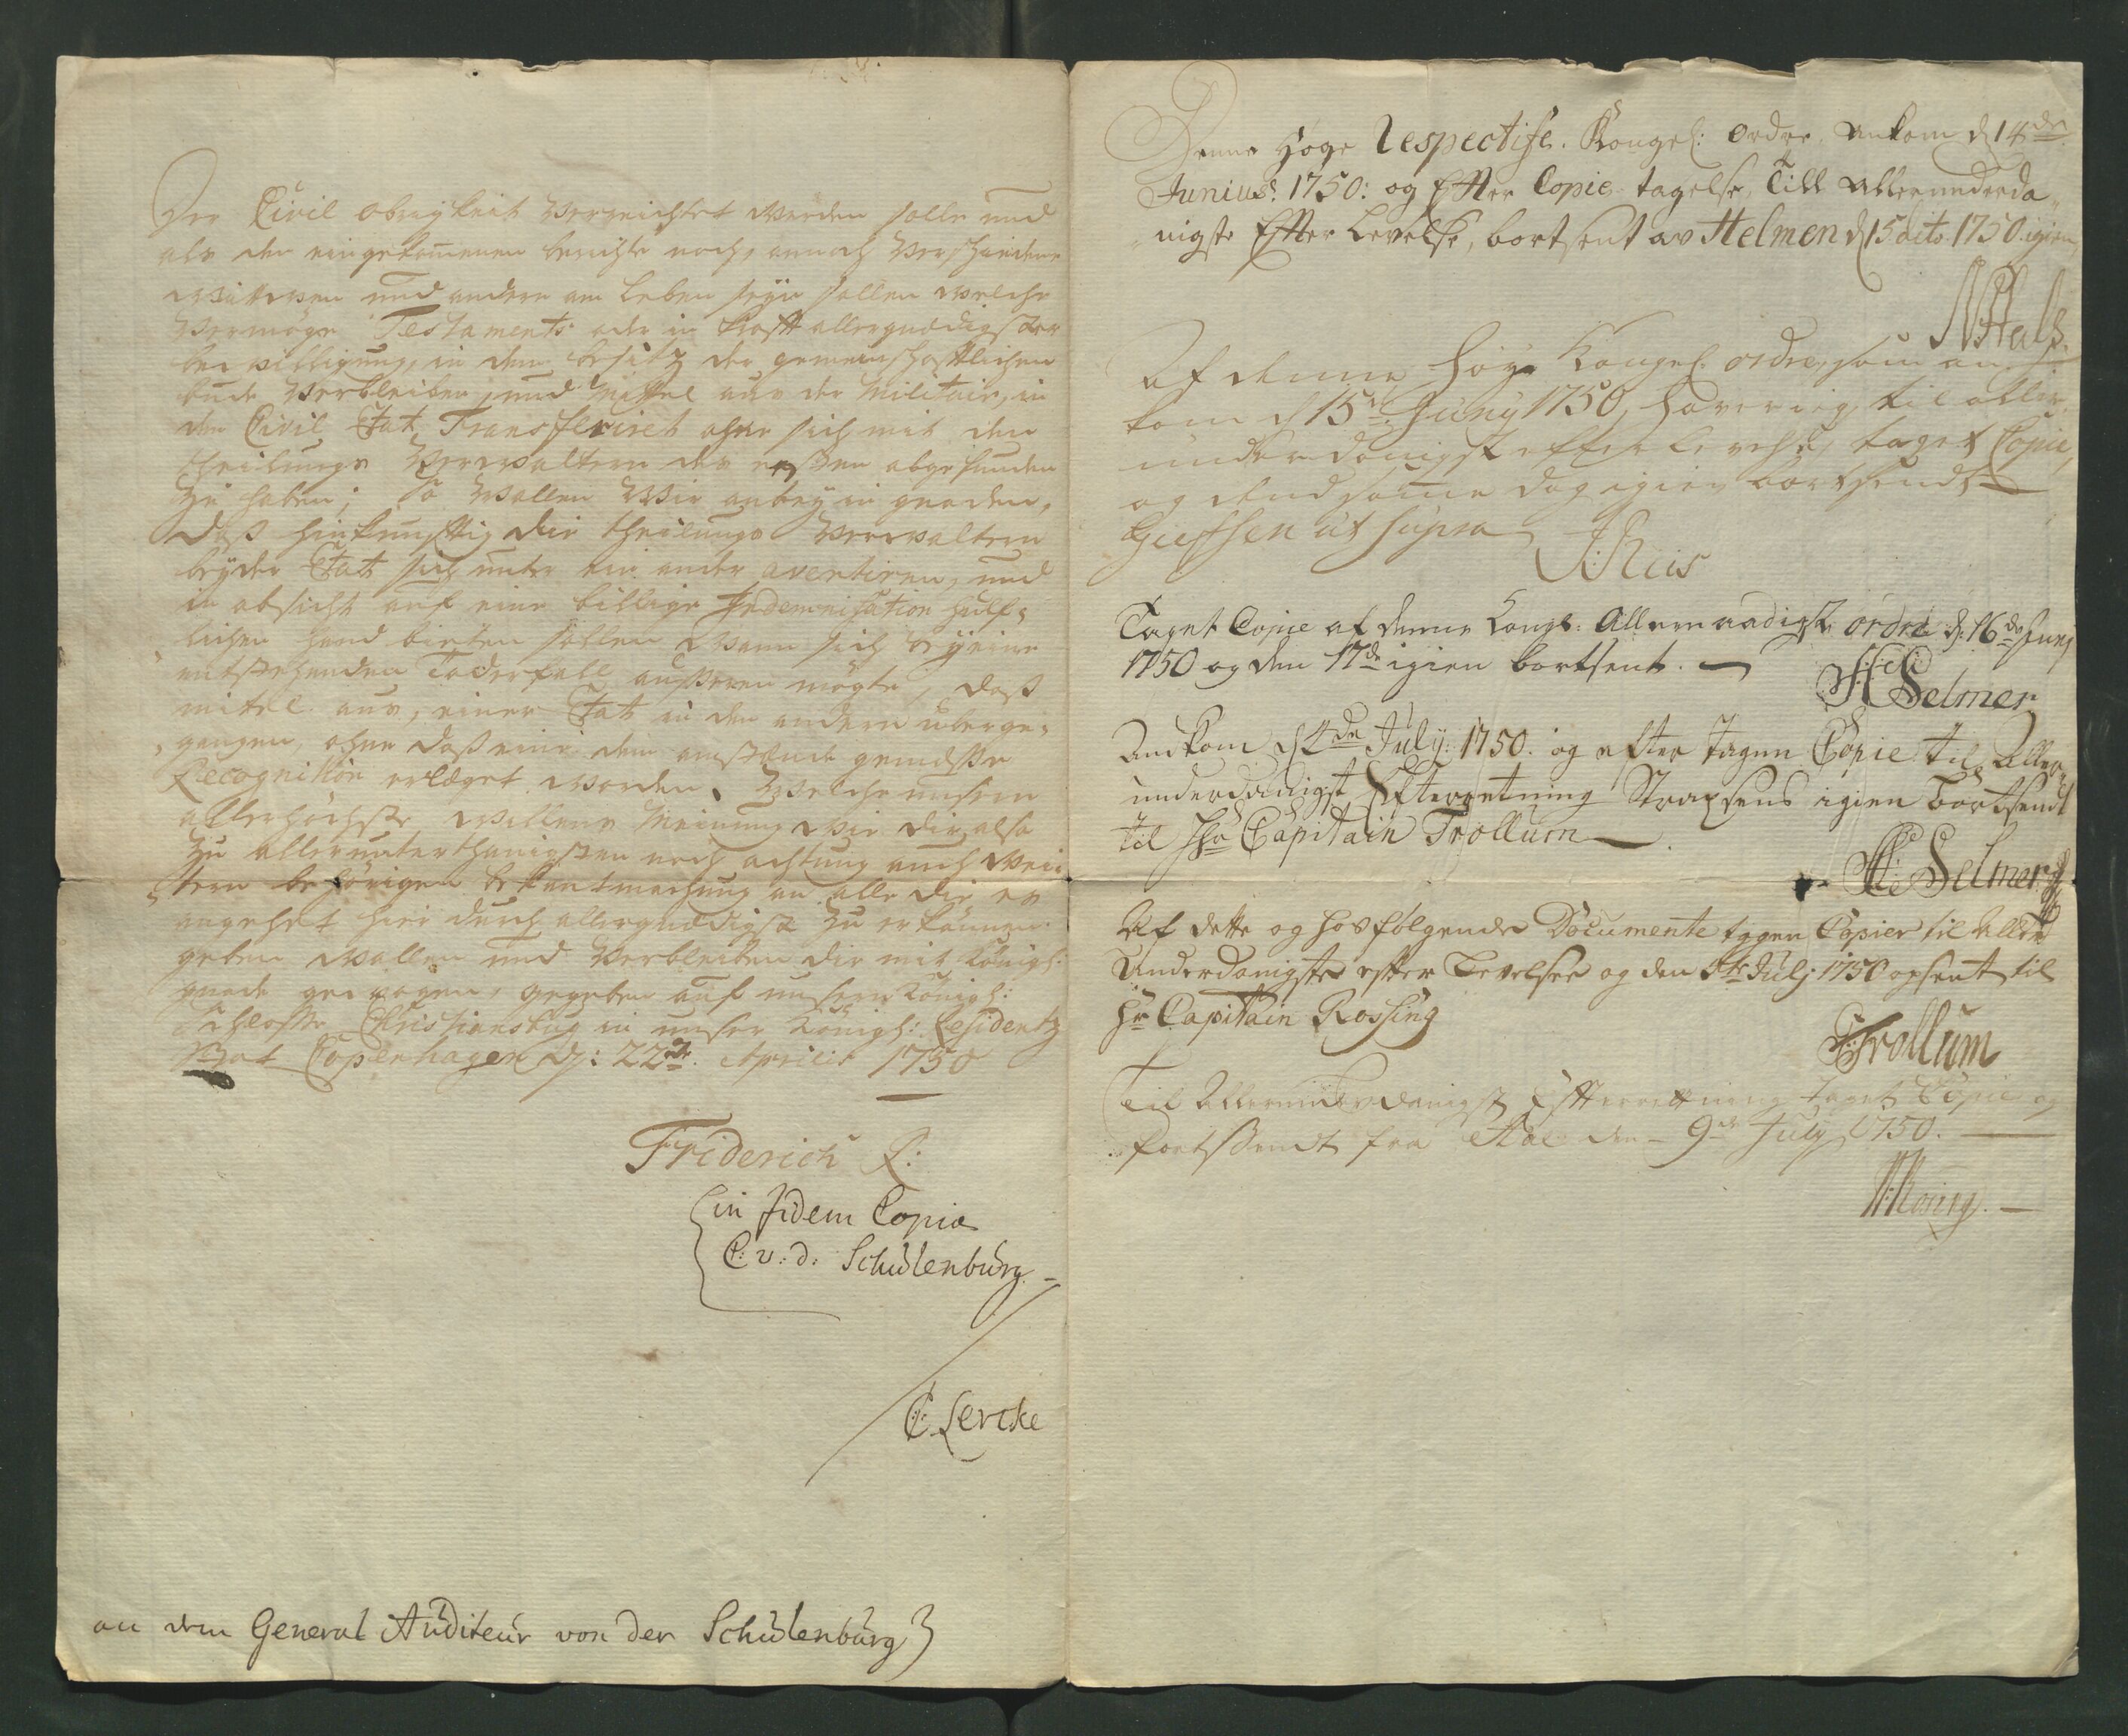 Der Civil obrigkeit verrichtet werden solle und
als den eingekomenen berichte nach, annoch verschiedene
wittwen und andere am leben seyn sollen welche
vermöge Testaments oder in krafft allergnädigster
bewilligung, in dem besitz der gemeinschafftlichen
bude verbleiben, und Mittel aus der Militair, in
den Civil Etat Transferiret ohne sich mit den
theilungs Verwaltern des ersten abgefunden
zu haben; So wollen Wir anbey in gnaden,
daß hinkünfftig die theilungs Verwaltern
beyder Etats sich unter ein ander avertiren, und
in absicht auf eine billige Indemnisation hülf-
lichen hand bieten sollen wann sich bey eine
entstehenden Todesfall äußeren mögte, daß
mittel aus, einer Etat in den andern überge-
gangen, ohne daß eine dem umstände gemäße
Recognition erleget worden. Welche unsern
allerhöchste willens Meinung wir dir also
zu allerunterthänigsten nach achtung auch wei-
tern behörigen bekantmachung an alle die es
angehet hier durch allergnädigst zu erkennen
geben wollen und verbleiben dir mit Königl:
gnade gewogen, gegeben auf unserm Königl:
Schlosse Christiansbug in unser Königl: Residentz
Stat Copenhagen d: 22de Aprilis 1750
Friderich R:
in fidem Copia
C: v: d: Schulenburg
C Lercke
an dem General Auditeur von der Schulenburg
Denne høye Respectife. Kongel: Ordre ankom d 14de
Junius: 1750: og Effter Copie tagelse, Till Allerunderda-
nigste Effter Levelse, bortsent av Helmen d 15 dito 1750 igien
NHals
Af denne høye Kongel. ordre, som an-
kom d 15de Juny 1750, haver ieg til aller-
underdanigst efterlevelse, taget Copie,
og dend samme dag igien bortsendt
Gieffsen ut supra
J: Reis
Taget Copie af denne Kongl: Allernaadigste ordre d: 16de Junj
1750 og den 17de igien bortsent.
H Selmer
Andkom d 4de July: 1750. og efter tagen Copie til Aller-
underdanigst Efterretning Straxsens igien bortsendt
til Hr Capitain Trollum
H Selmer
Af dette og hos følgende Documente tagen Copier til Aller
Underdanigste efter Levelse og den 5te Julj 1750 opsent til
Hr Capitain Rossing
Trollum
Til Allerunderdanigst Effterrettning taget Copie og
fortsendt fra Aae den 9de July 1750.
Rosing.